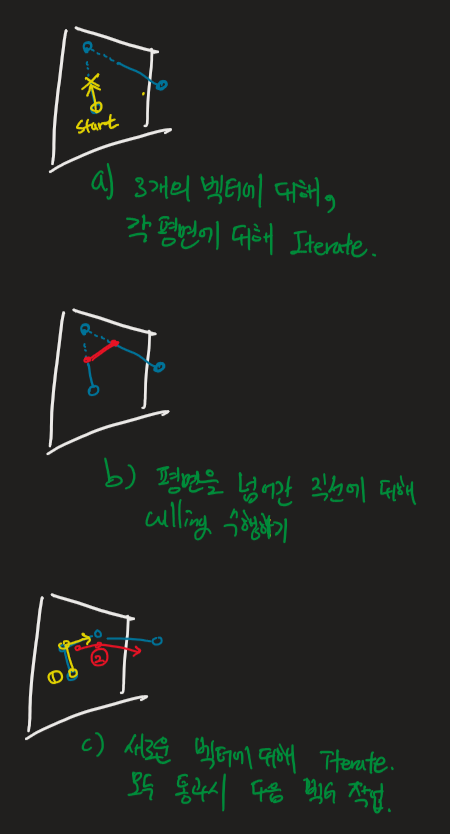 start
a) 3개의 벡터에 대해,
각 평면에 대해 Iterate.
b) 평면을 넘어간 직선에 대해
culling 수행하기
①
②
c) 새로운 벡터에 대해 Iterate.
모두 통과시 다음 벡터 작업.